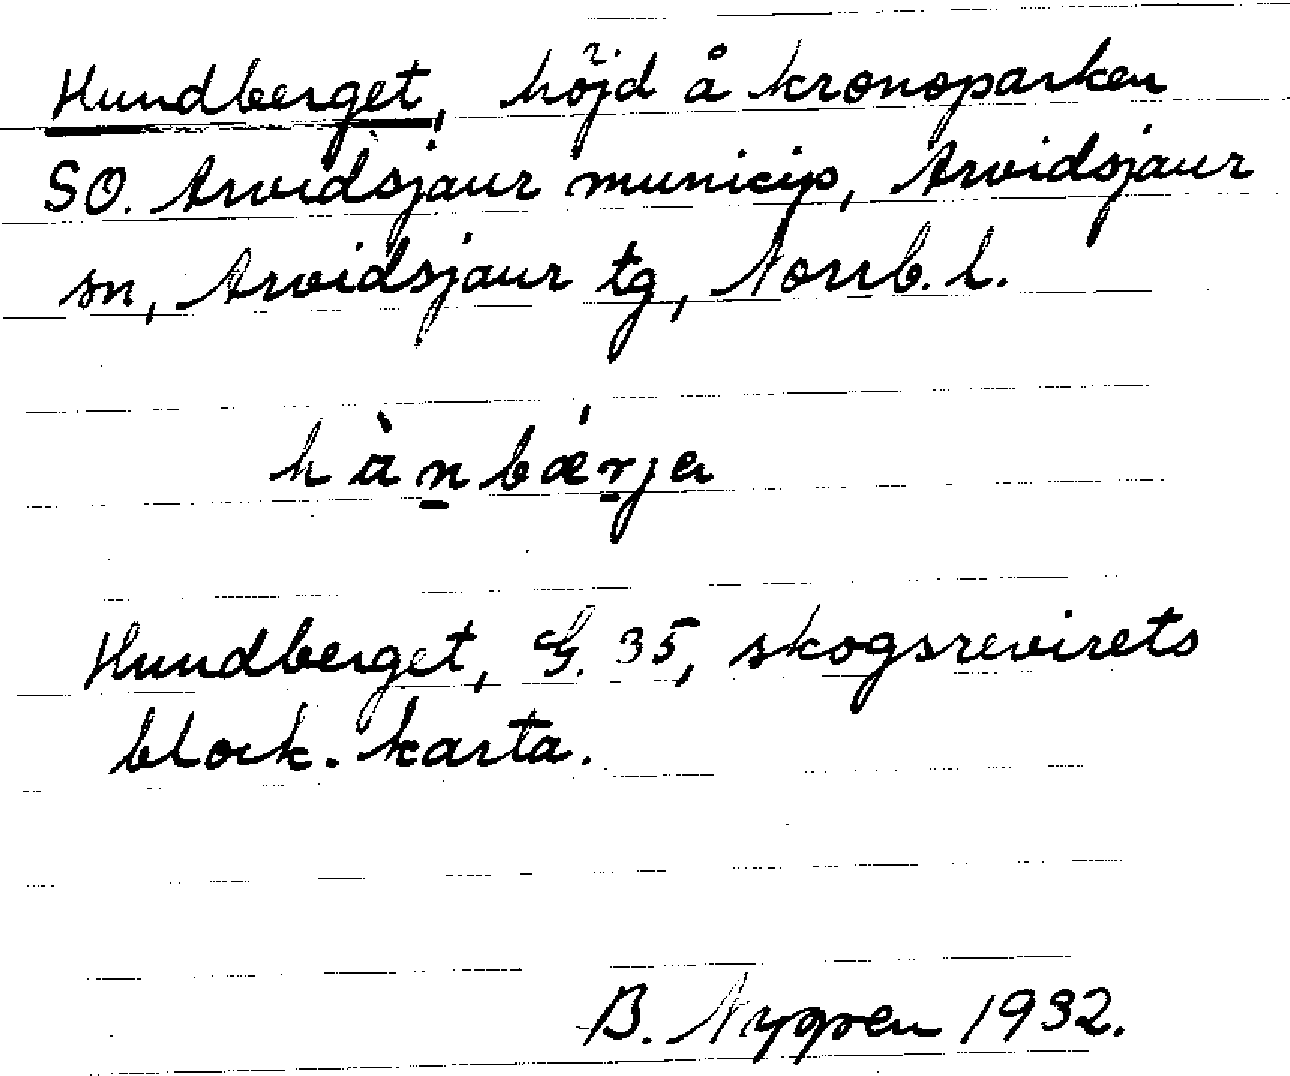 Hundberget, höjd å kronoparken
SO. Arvidsjaur municip, Arvidsjaur
sn, Arvidsjaur tg, Norrb. l.
hànbǽrja
Hundberget, G. 35, skogsrevirets
block. karta.
B. Nygren 1932.